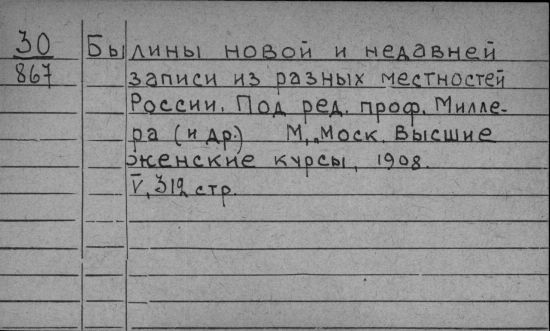 30 Былины новой и недавней
867 записи из разных местностей
России. Под ред. проф. Милле-
ра (и др.) М., Моск. Высшие
женские курсы, 1908.
V, 312 стр.